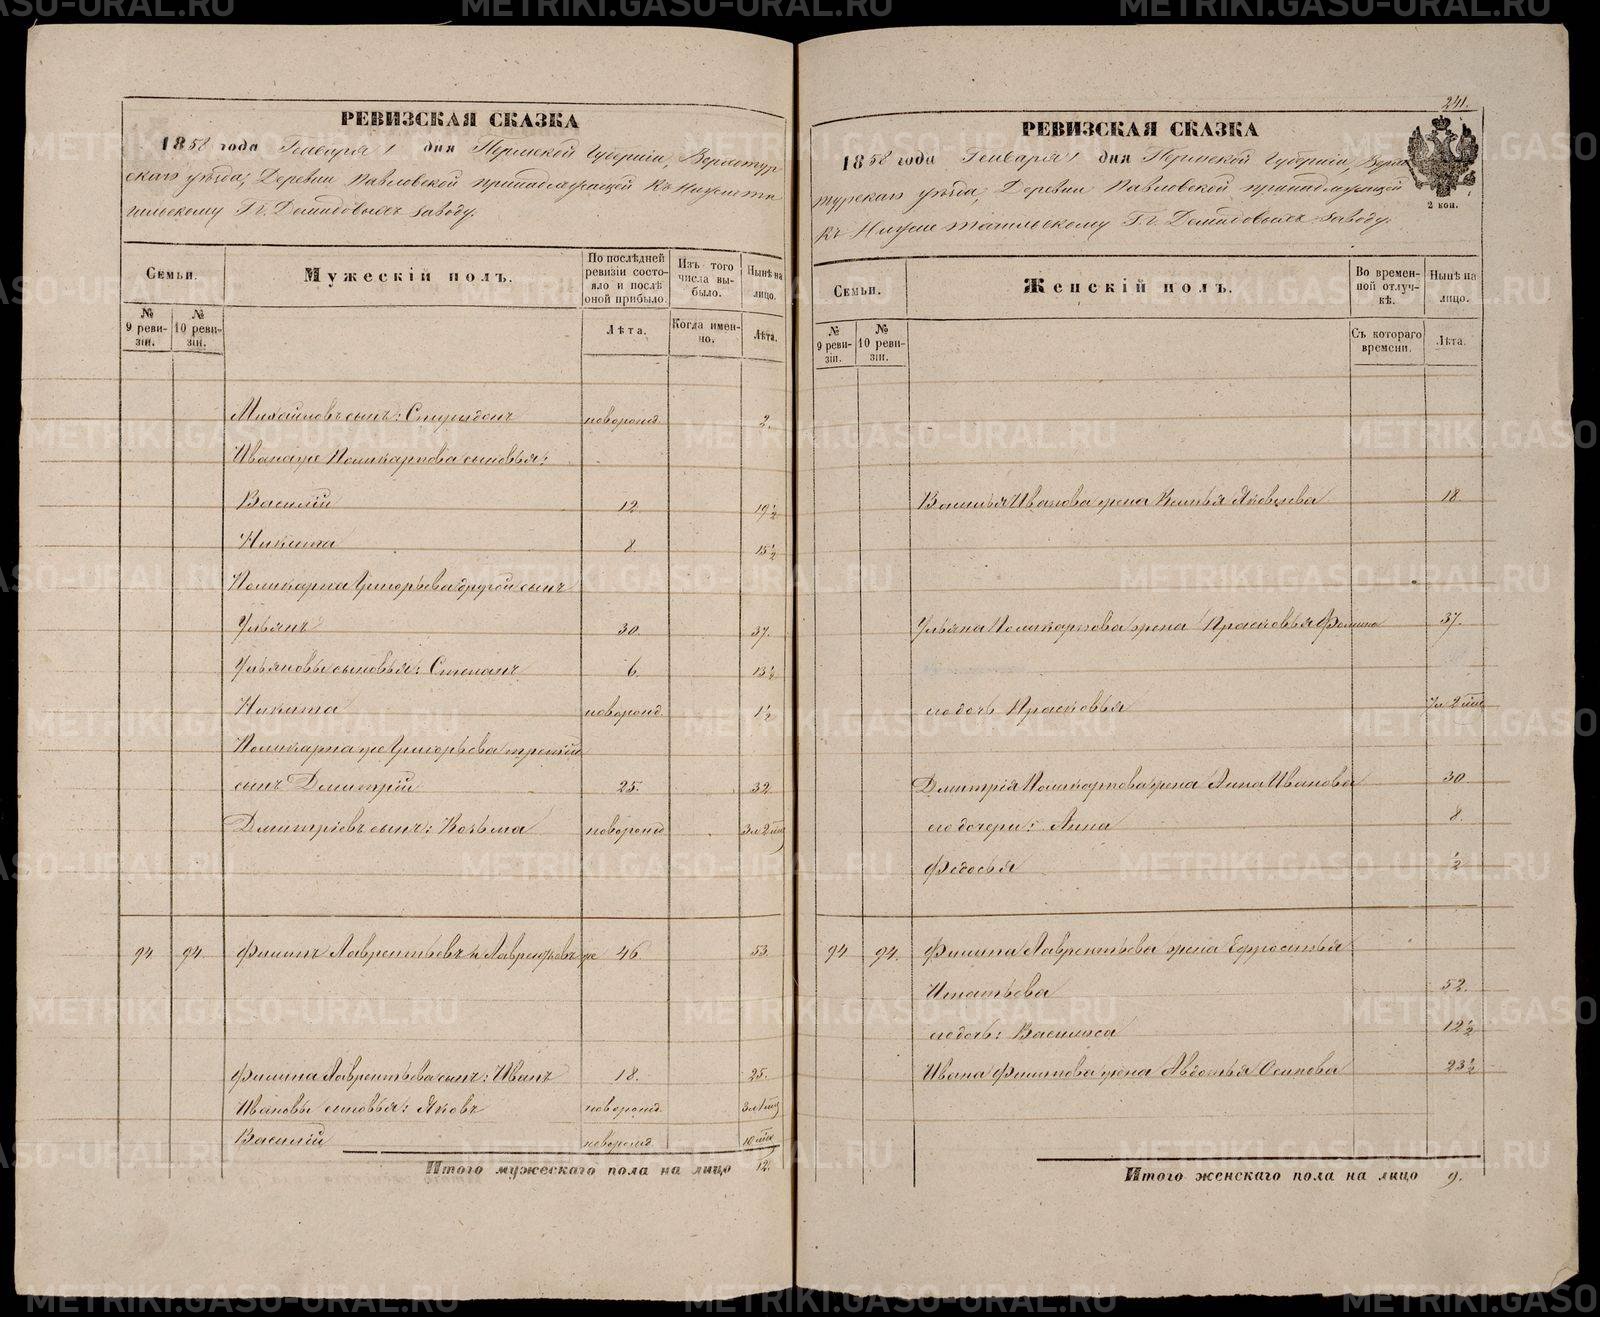 РЕВИЗСКАЯ СКАЗКА
1858 года Генваря 1 дня Пермской Губерніи, Верхотур
скаго уѣзда, Деревни Павловской принадлежащей Къ Нижнета
гильскому Гг. Демидовыхъ заводу.
Семьи.
Мужескій полъ.
По послѣдней ревизіи состояло и послѣ оной прибыло.
Изъ того числа выбыло.
Нынѣ на лицо.
№ 9 ревизіи.
№ 10 ревизіи.
Лѣта.
Когда именно.
Лѣта.
Михайловъ сынъ: Спиридонъ новорожд. 2.
Ивана же Поликарпова сыновья:
Василій 12 19½
Никита 8. 15½
Поликарпа Григорьева другой сынъ
Ульянъ 30. 37.
Ульяновы сыновья: Степанъ 6. 13½
Никита новорожд. 1½
Поликарпа же Григорьева третій
сынъ Дмитрій 25. 32
Дмитріевъ сынъ: Козьма новорожд
94 94. Филипъ Лаврентьевъ 46 53.
Филипа Лаврентьева сынъ: Иванъ 18. 25.
Ивановы сыновья: Яковъ новорожд.
Василій новорожд.
Итого мужескаго пола на лицо 12.
241.
РЕВИЗСКАЯ СКАЗКА
2 коп.
1858 года Генваря 1 дня Пермской Губерніи, Верхо
турскаго уѣзда, Деревни Павловской принадлежащей
Къ Нижне тагильскому Гг. Демидовыхъ заводу.
Семьи.
Женскій полъ.
Во временной отлучкѣ.
Нынѣ на лицо.
№ 9 ревизіи.
№ 10 ревизіи.
Съ котораго времени.
Лѣта.
Василья Иванова жена Яковлева 18
Ульяна Поликарпова жена Прасковья Фомина 37.
его дочь Прасковья
Дмитрія Поликарпова жена Анна Иванова 30
его дочери: Анна 8.
Федосья ½
94 94. Филипа Лаврентьева жена Ефросинья
Игнатьева 52.
его дочь: Василиса 12½
Ивана Филипова жена Авдотья Осипова 23½
Итого женскаго пола на лицо 9.
METRIKI.GASO-URAL.RU